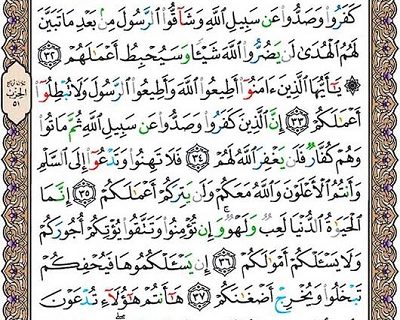 كَفَرُوا۟ وَصَدُّوا۟ عَن سَبِيلِ ٱللَّهِ وَشَآقُّوا۟ ٱلرَّسُولَ مِنۢ بَعْدِ مَا تَبَيَّنَ
لَهُمُ ٱلْهُدَىٰ لَن يَضُرُّوا۟ ٱللَّهَ شَيْـًٔا وَسَيُحْبِطُ أَعْمَـٰلَهُمْ ٣٢
۞ يَـٰٓأَيُّهَا ٱلَّذِينَ ءَامَنُوٓا۟ أَطِيعُوا۟ ٱللَّهَ وَأَطِيعُوا۟ ٱلرَّسُولَ وَلَا تُبْطِلُوٓا۟
أَعْمَـٰلَكُمْ ٣٣ إِنَّ ٱلَّذِينَ كَفَرُوا۟ وَصَدُّوا۟ عَن سَبِيلِ ٱللَّهِ ثُمَّ مَاتُوا۟
وَهُمْ كُفَّارٌ فَلَن يَغْفِرَ ٱللَّهُ لَهُمْ ٣٤ فَلَا تَهِنُوا۟ وَتَدْعُوٓا۟ إِلَى ٱلسَّلْمِ
وَأَنتُمُ ٱلْأَعْلَوْنَ وَٱللَّهُ مَعَكُمْ وَلَن يَتِرَكُمْ أَعْمَـٰلَكُمْ ٣٥ إِنَّمَا
ٱلْحَيَوٰةُ ٱلدُّنْيَا لَعِبٌ وَلَهْوٌ ۚ وَإِن تُؤْمِنُوا۟ وَتَتَّقُوا۟ يُؤْتِكُمْ أُجُورَكُمْ
وَلَا يَسْـَٔلْكُمْ أَمْوَٰلَكُمْ ٣٦ إِن يَسْـَٔلْكُمُوهَا فَيُحْفِكُمْ
تَبْخَلُوا۟ وَيُخْرِجْ أَضْغَـٰنَكُمْ ٣٧ هَـٰٓأَنتُمْ هَـٰٓؤُلَآءِ تُدْعَوْنَ
الحزب
٥١